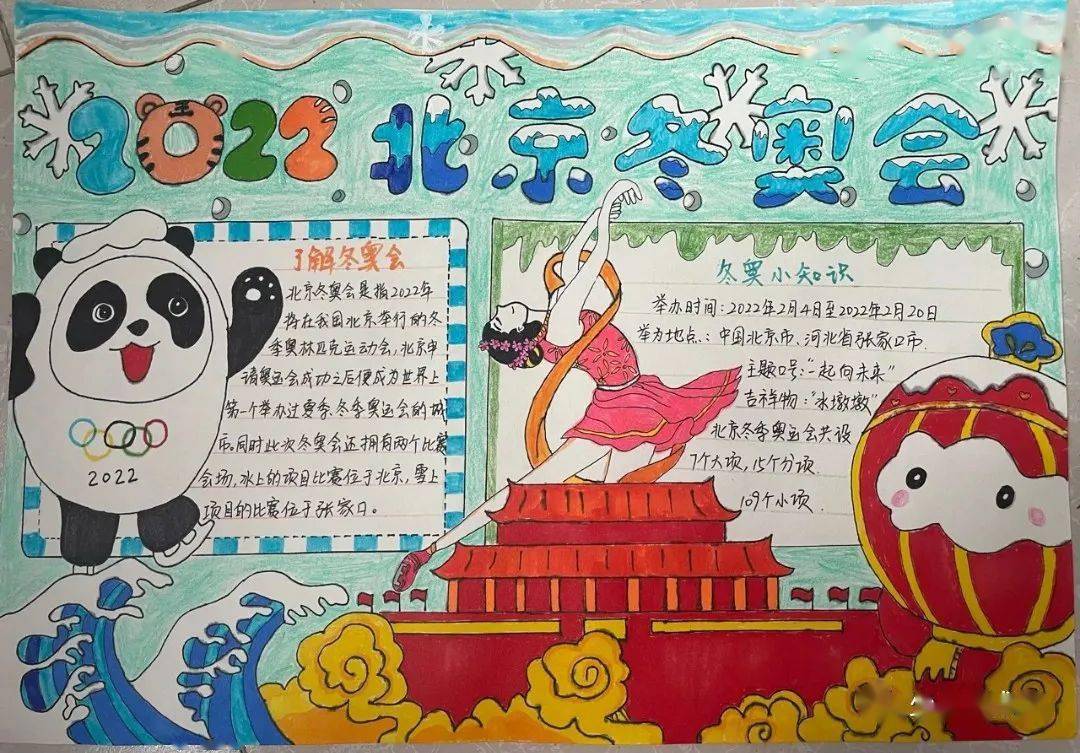 2022 北京冬奥会
了解冬奥会
北京冬奥会是指2022年
将在我国北京举行的冬
季奥林匹克运动会,北京申
请奥运会成功之后便成为世界上
第一个举办过夏季、冬季奥运会的城
市。同时此次冬奥会还拥有两个比赛
会场,冰上的项目比赛位于北京,雪上
项目的比赛位于张家口。
2022
冬奥小知识
举办时间:2022年2月4日至2022年2月20日
举办地点:中国北京市、河北省张家口市.
主题口号:"一起向未来"
吉祥物:"冰墩墩"
北京冬季奥运会共设
7个大项,15个分项.
109个小项.